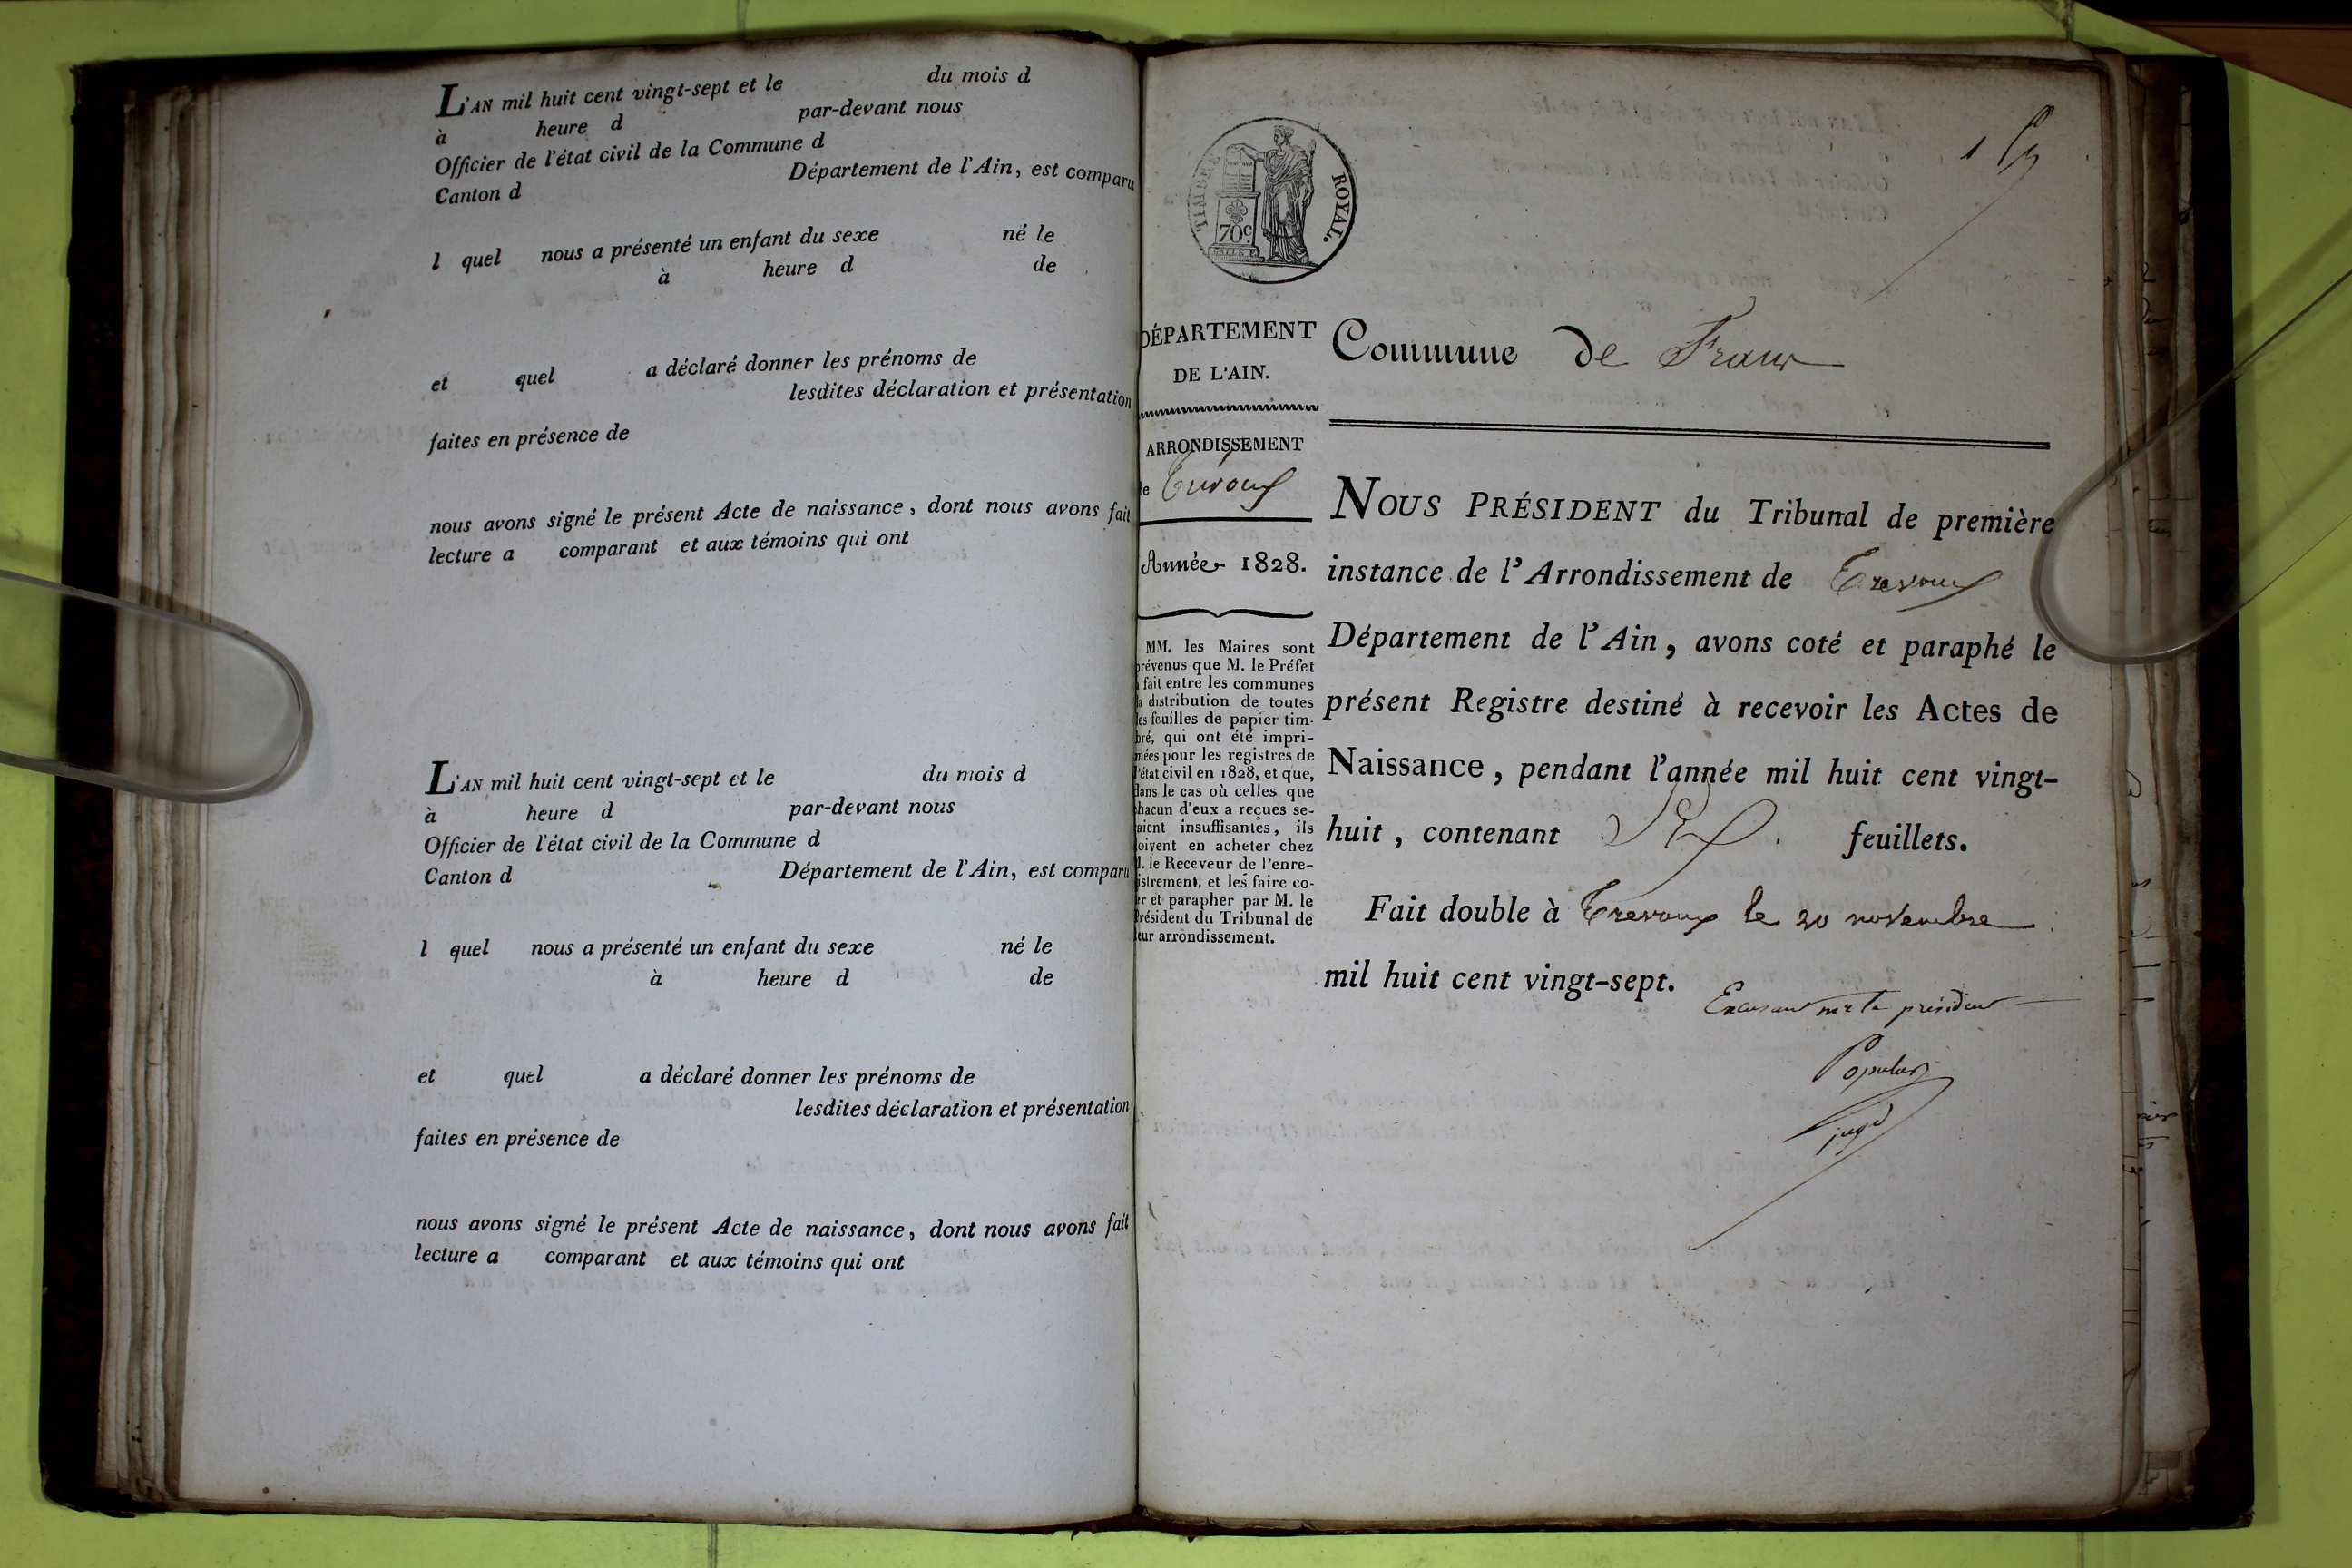 L'AN mil huit cent vingt-sept et le du mois d
à heure d par-devant nous
Officier de l'état civil de la Commune d
Canton d Département de l'Ain, est comparu
l quel nous a présenté un enfant du sexe né le
à heure d de
et quel a déclaré donner les prénoms de
lesdites déclaration et présentation
faites en présence de
nous avons signé le présent Acte de naissance, dont nous avons fait
lecture a comparant et aux témoins qui ont
L'AN mil huit cent vingt-sept et le du mois d
à heure d par-devant nous
Officier de l'état civil de la Commune d
Canton d Département de l'Ain, est comparu
l quel nous a présenté un enfant du sexe né le
à heure d de
et quel a déclaré donner les prénoms de
lesdites déclaration et présentation
faites en présence de
nous avons signé le présent Acte de naissance, dont nous avons fait
lecture a comparant et aux témoins qui ont
1
TIMBRE ROYAL.
70c
DÉPARTEMENT
DE L'AIN.
ARRONDISSEMENT
de Trévoux
Année 1828.
MM. les Maires sont
prévenus que M. le Préfet
a fait entre les communes
la distribution de toutes
les feuilles de papier tim-
bré, qui ont été impri-
mées pour les registres de
l'état civil en 1828, et que,
dans le cas où celles que
chacun d'eux a reçues se-
raient insuffisantes, ils
doivent en acheter chez
M. le Receveur de l'enre-
gistrement, et les faire co-
ter et parapher par M. le
Président du Tribunal de
leur arrondissement.
Commune de Frans
NOUS PRÉSIDENT du Tribunal de première
instance de l'Arrondissement de Trevoux
Département de l'Ain, avons coté et paraphé le
présent Registre destiné à recevoir les Actes de
Naissance, pendant l'année mil huit cent vingt-
huit, contenant feuillets.
Fait double à Trevoux le 20 novembre
mil huit cent vingt-sept.
mr le président
juge